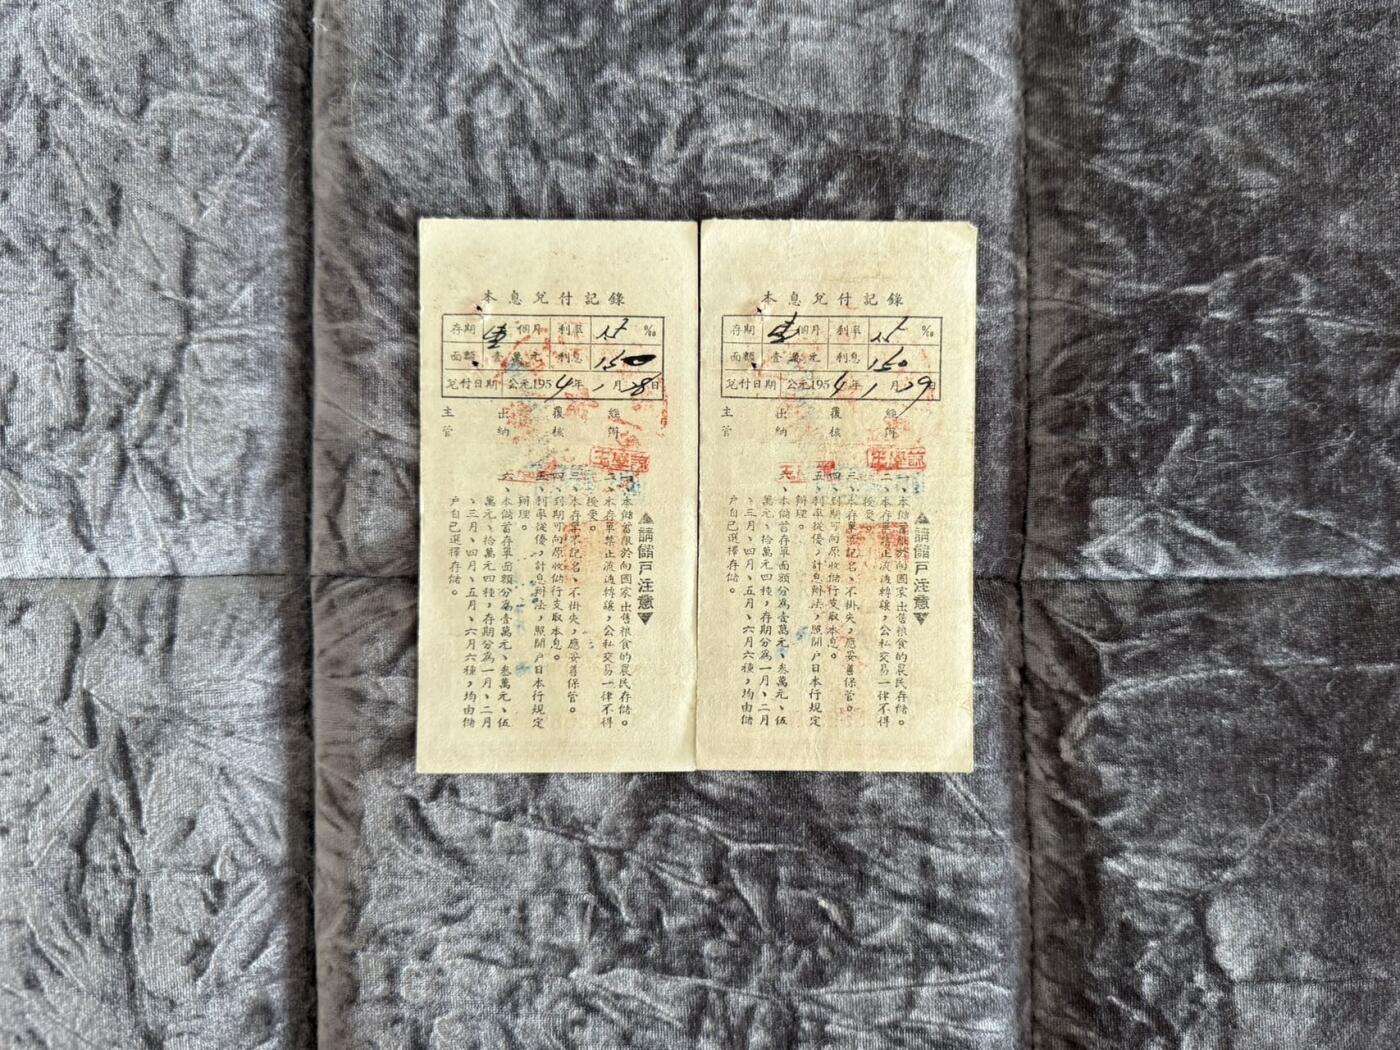 本息兌付記錄
存期 壹 個月 利率 15 ‰
面額 壹萬元 利息 150
兌付日期 公元1954年1月28日
主管 出納 覆核 經付
▲請儲戶注意▼
一、本儲蓄限於向國家出售粮食的農民存儲。
二、本存單禁止流通轉讓，公私交易一律不得
接受。
三、本存單不記名、不掛失，應妥善保管。
四、到期可向原收儲行支取本息。
五、利率從優，計息辦法，照開戶日本行規定
辦理。
六、本儲蓄存單面額分為壹萬元、叁萬元、伍
萬元、拾萬元四種，存期分為一月、二月
、三月、四月、五月、六月六種，均由儲
戶自己選擇存儲。
本息兌付記錄
存期 壹 個月 利率 15 ‰
面額 壹萬元 利息 150
兌付日期 公元1954年1月29日
主管 出納 覆核 經付
▲請儲戶注意▼
一、本儲蓄限於向國家出售粮食的農民存儲。
二、本存單禁止流通轉讓，公私交易一律不得
接受。
三、本存單不記名、不掛失，應妥善保管。
四、到期可向原收儲行支取本息。
五、利率從優，計息辦法，照開戶日本行規定
辦理。
六、本儲蓄存單面額分為壹萬元、叁萬元、伍
萬元、拾萬元四種，存期分為一月、二月
、三月、四月、五月、六月六種，均由儲
戶自己選擇存儲。